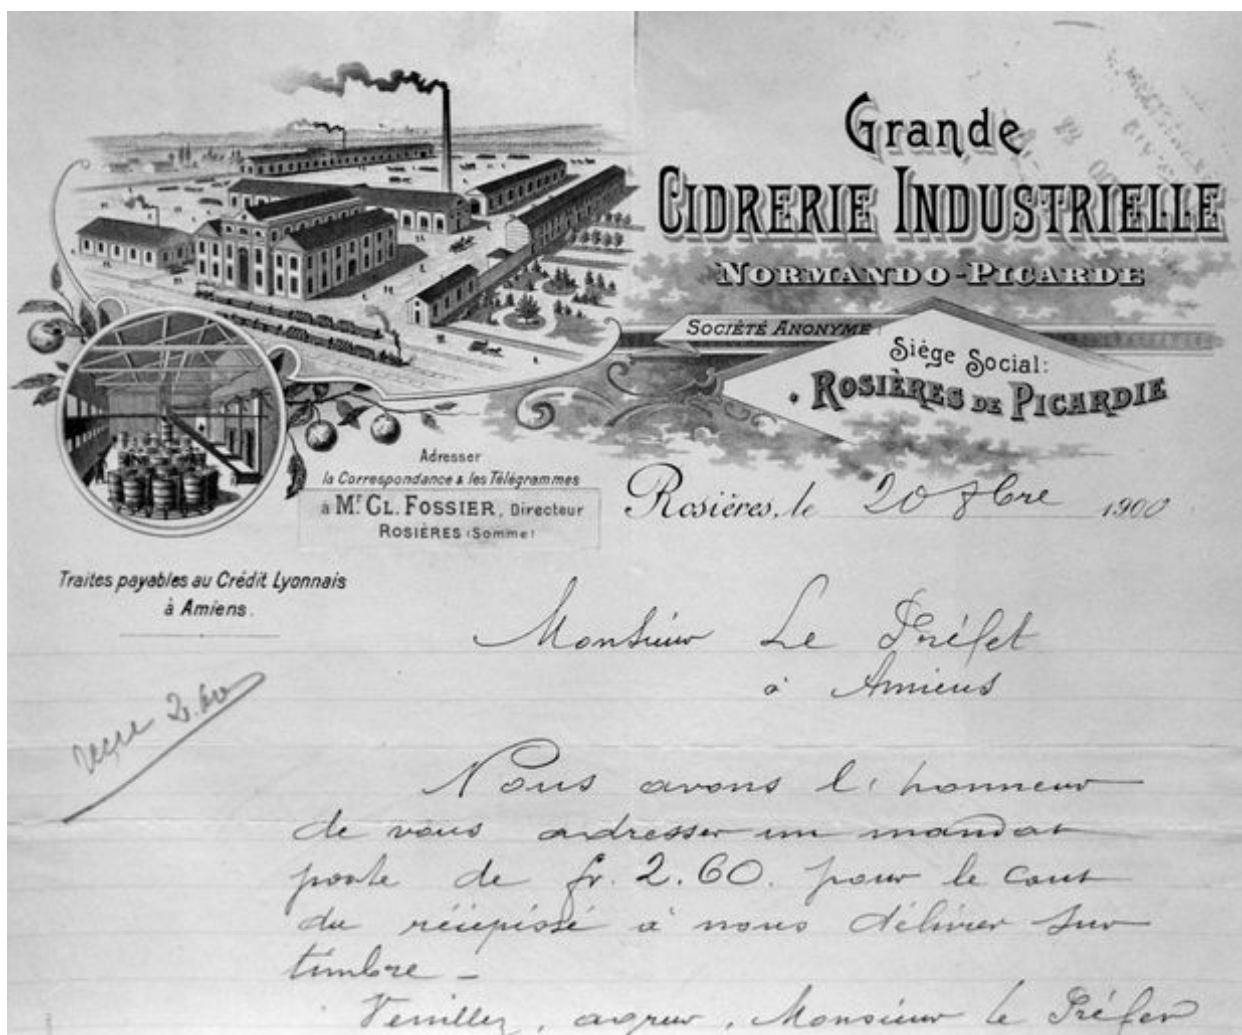 Grande
CIDRERIE INDUSTRIELLE
NORMANDO-PICARDE
SOCIÉTÉ ANONYME:
Siège Social:
ROSIÈRES DE PICARDIE
Adresser
la Correspondance & les Télégrammes
à Mr. CL. FOSSIER, Directeur
ROSIÈRES (Somme)
Rosières, le 20 8bre 1900
Traites payables au Crédit Lyonnais
à Amiens.
Monsieur Le Préfet
à Amiens
reçu 2.60
Nous avons l'honneur
de vous adresser un mandat
poste de fr. 2.60. pour le cout
du récépissé à nous délivrer sur
timbre -
Veuillez, agréer, Monsieur le Préfet